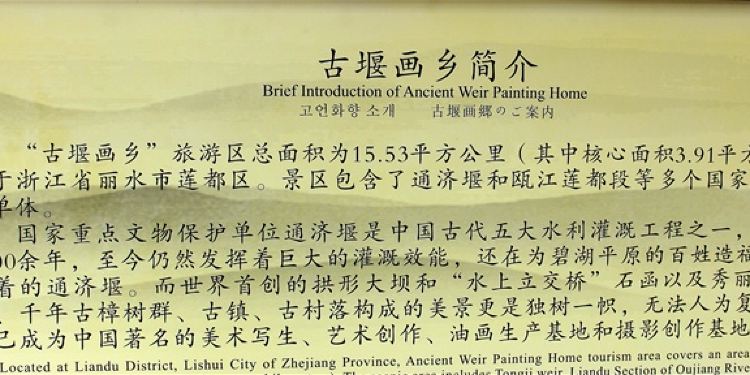 古堰画乡简介
Brief Introduction of Ancient Weir Painting Home
고언화향 소개 古堰画郷のご案内
“古堰画乡”旅游区总面积为15.53平方公里（其中核心面积3.91平方
于浙江省丽水市莲都区。景区包含了通济堰和瓯江莲都段等多个国家
单体。
国家重点文物保护单位通济堰是中国古代五大水利灌溉工程之一，
00余年，至今仍然发挥着巨大的灌溉效能，还在为碧湖平原的百姓造福
着的通济堰。而世界首创的拱形大坝和“水上立交桥”石函以及秀丽
千年古樟树群、古镇、古村落构成的美景更是独树一帜，无法人为复
已成为中国著名的美术写生、艺术创作、油画生产基地和摄影创作基地
Located at Liandu District, Lishui City of Zhejiang Province, Ancient Weir Painting Home tourism area covers an area
The scenic area includes Tongji weir, Liandu Section of Oujiang River